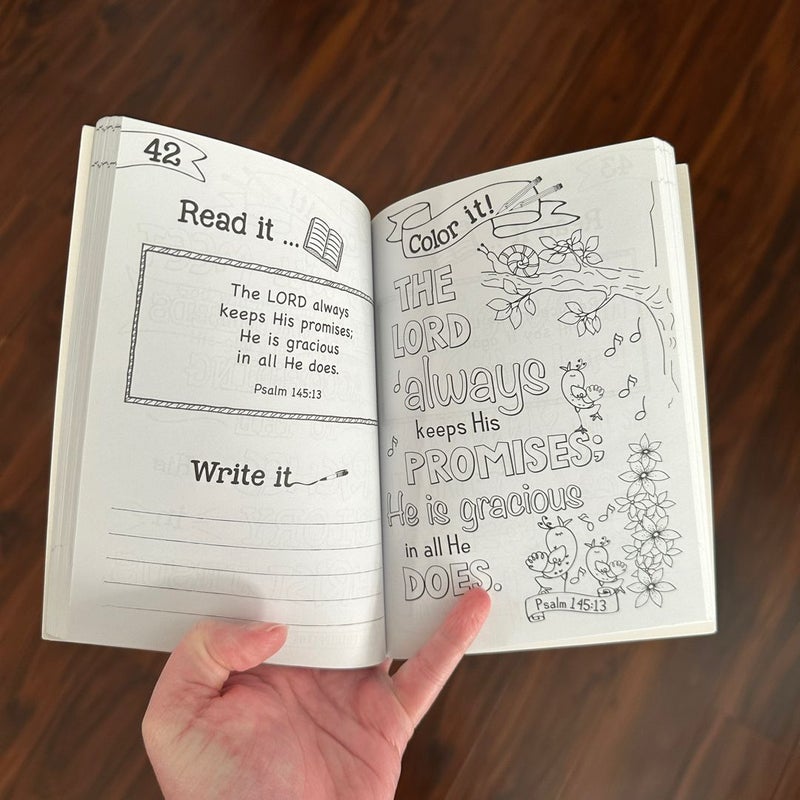 42
Read it ...
The LORD always
keeps His promises;
He is gracious
in all He does.
Psalm 145:13
Write it
Color it!
THE
LORD
always
keeps His
PROMISES;
He is gracious
in all He
DOES.
Psalm 145:13